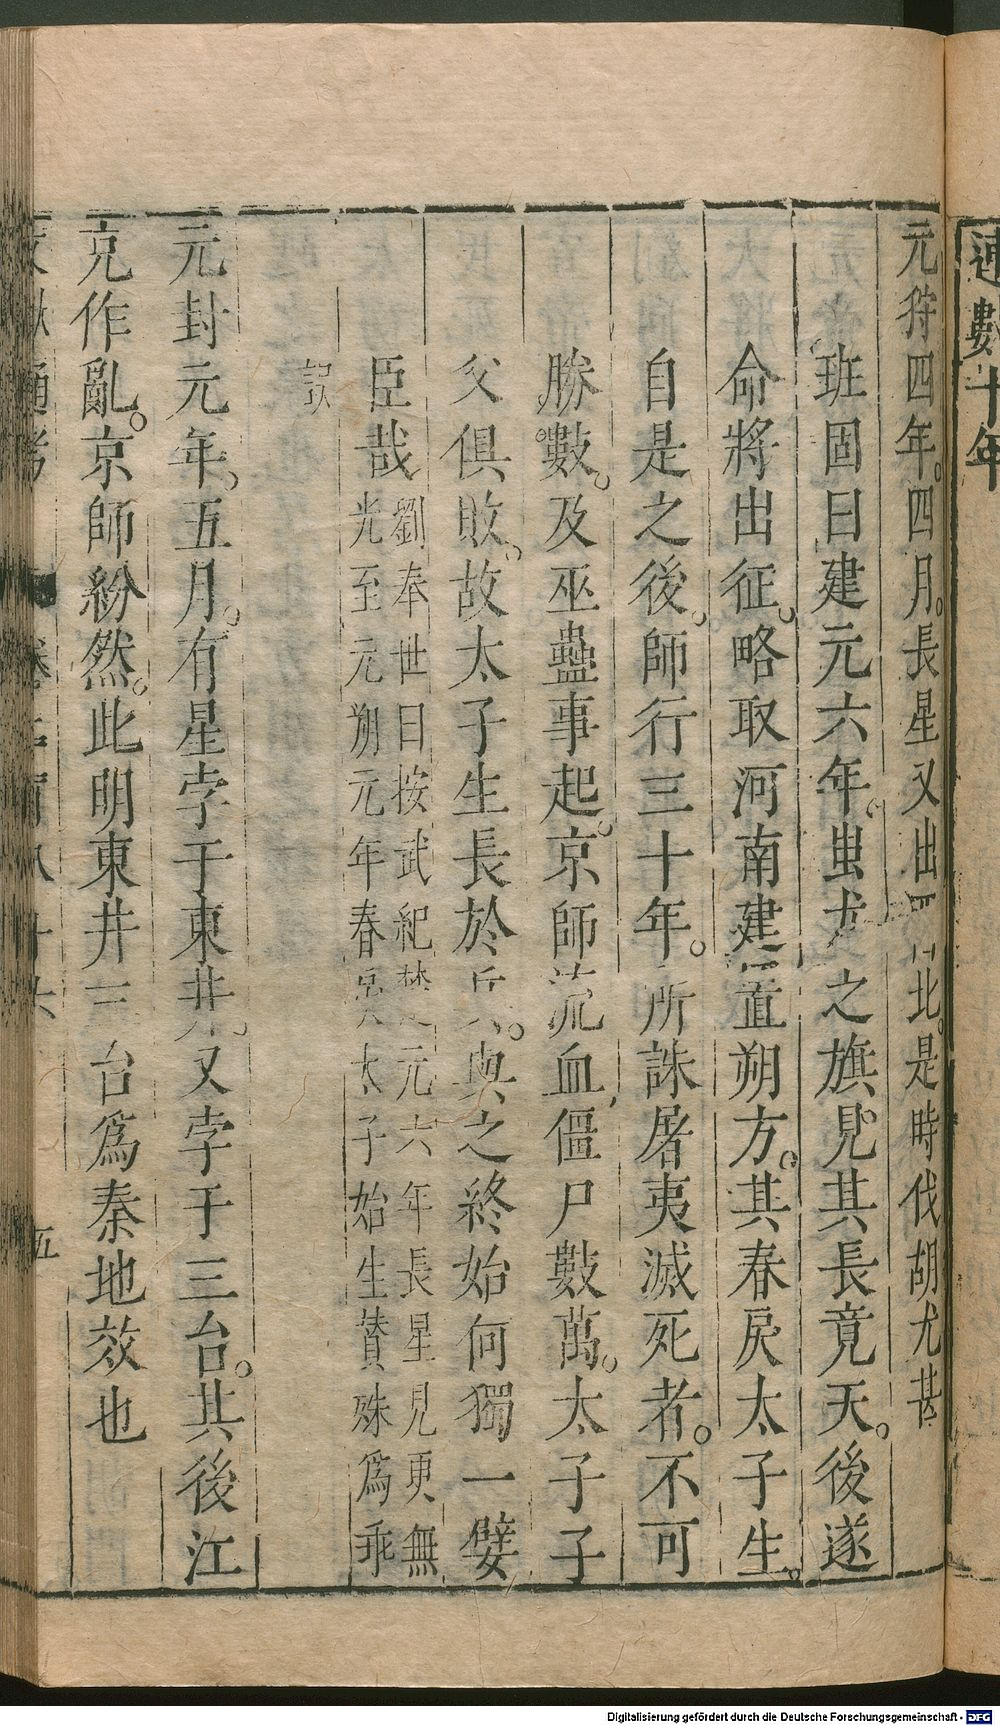 連數十年
元狩四年。四月。長星又出西北。是時伐胡尤甚
班固曰建元六年。蚩尤之旗見其長竟天。後遂
命將出征。略取河南建置朔方。其春戾太子生。
自是之後。師行三十年。所誅屠夷滅死者。不可
勝數。及巫蠱事起。京師流血僵尸數萬。太子子
父俱敗。故太子生長於兵。與之終始何獨一嬖
臣哉
劉奉世曰按武紀建元六年長星見更無
光至元朔元年春戾太子始生賛殊爲乖
誤
元封元年。五月。有星孛于東井。又孛于三台。其後江
充作亂。京師紛然。此明東井三台爲秦地效也
文獻通考
卷二百八十六
五
Digitalisierung gefördert durch die Deutsche Forschungsgemeinschaft - DFG